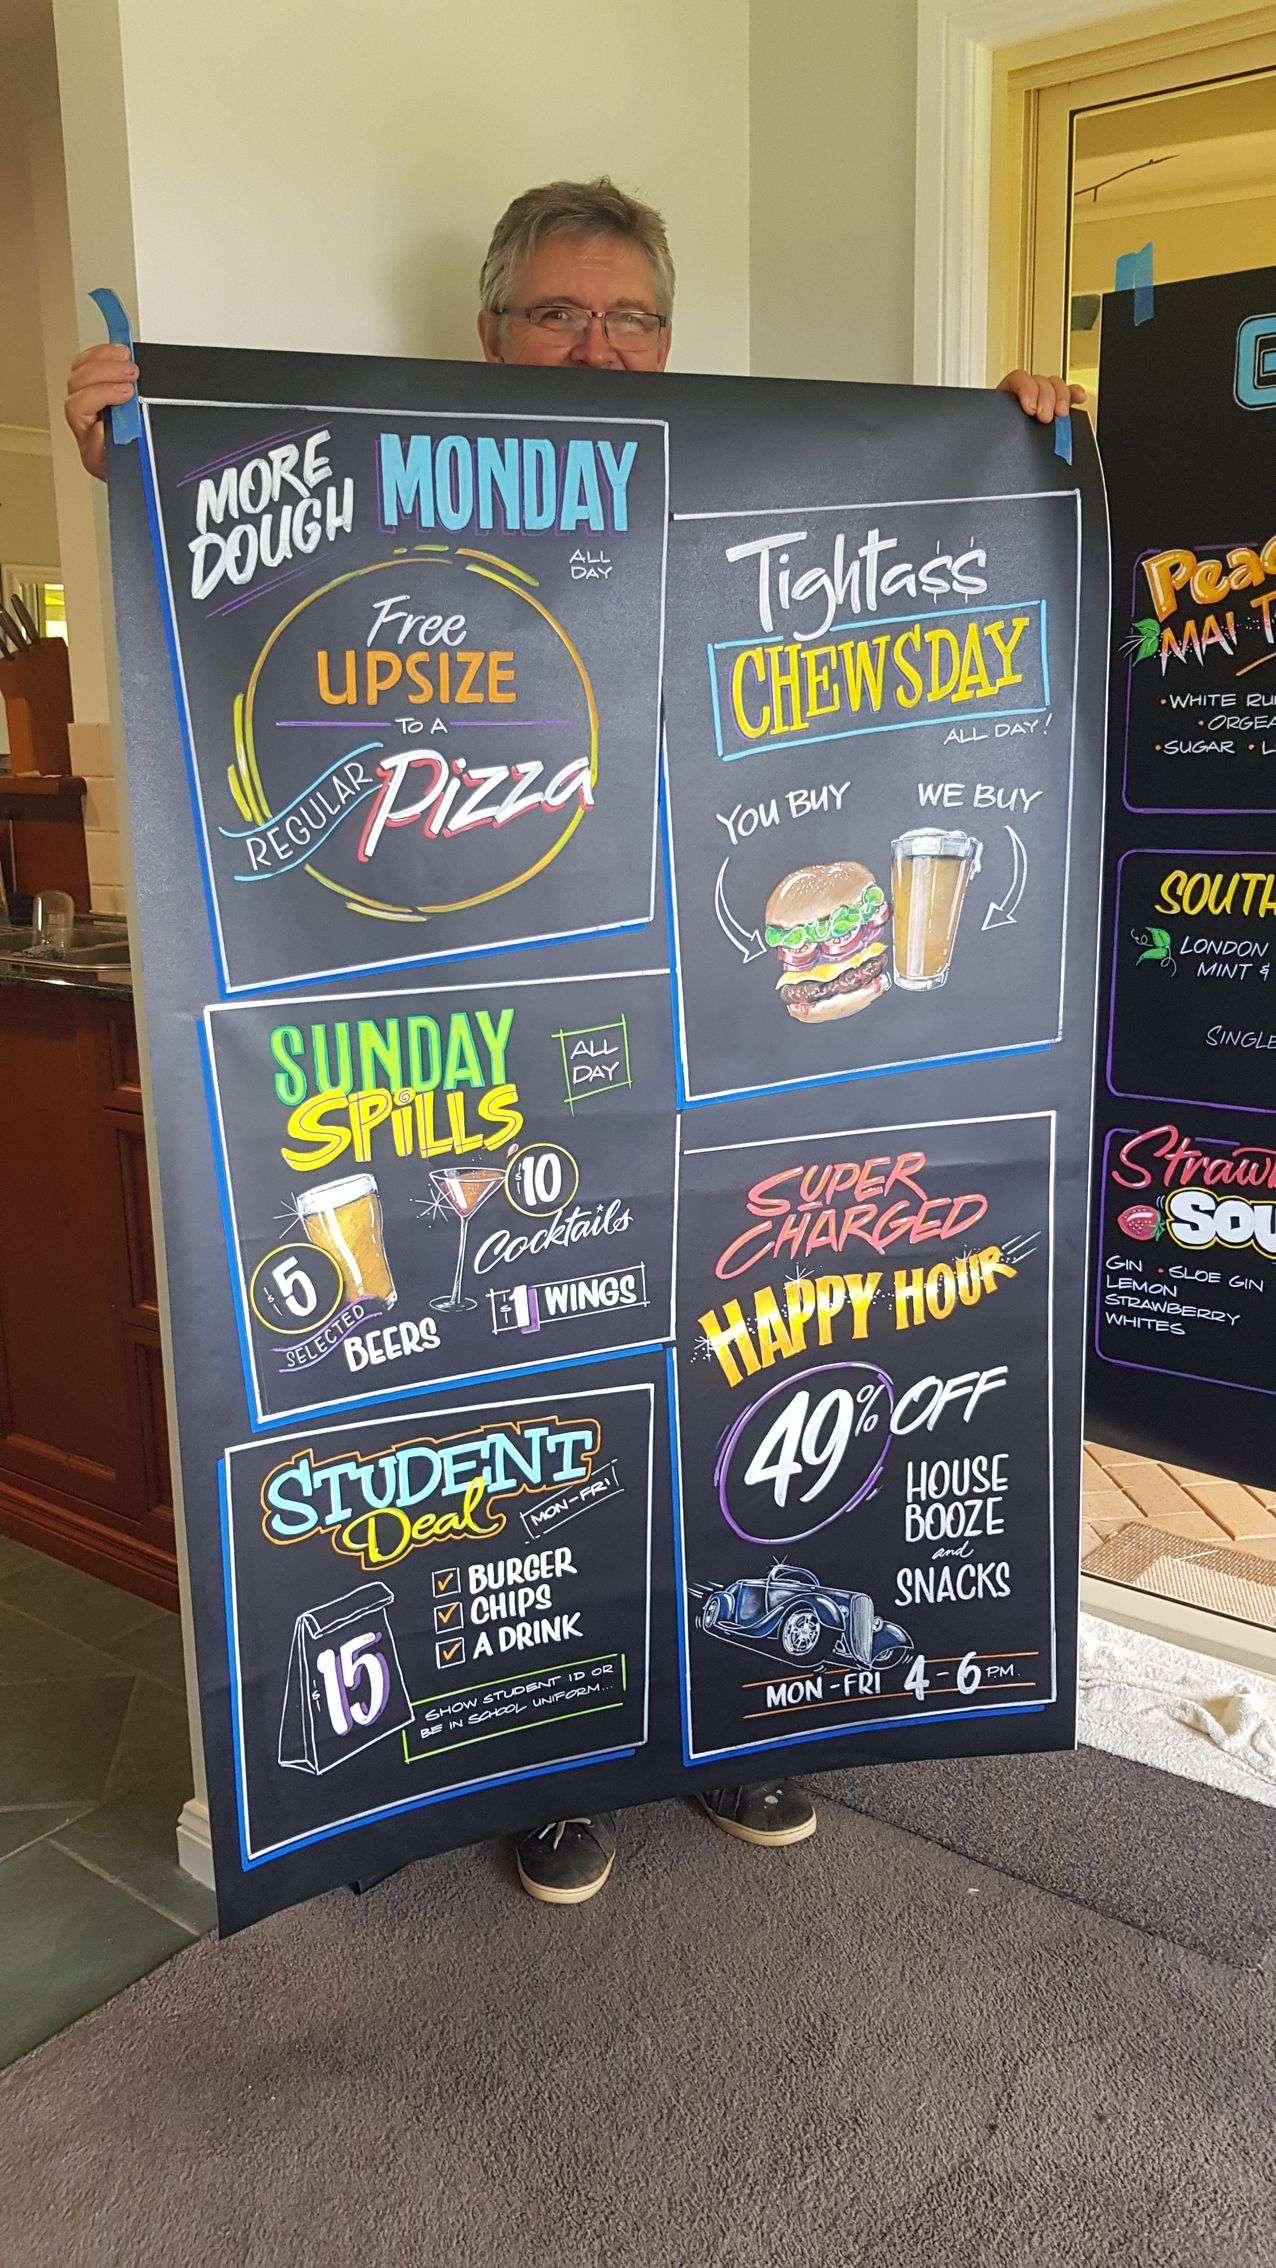 MORE
DOUGH
MONDAY
ALL
DAY
Free
UPSIZE
TO A
REGULAR
Pizza
Tighta$$
CHEWSDAY
ALL DAY!
YOU BUY
WE BUY
SUNDAY
SPiLLS
ALL
DAY
$5
SELECTED
BEERS
$10
Cocktails
$1 WINGS
STUDENT
Deal
MON-FRI
$15
BURGER
CHIPS
A DRINK
SHOW STUDENT ID OR
BE IN SCHOOL UNIFORM...
SUPER
CHARGED
HAPPY HOUR
49% OFF
HOUSE
BOOZE
and
SNACKS
MON-FRI 4-6 PM.
MAI
• WHITE
•
• SUGAR •
LONDON
MINT &
SINGLE
GIN • SLOE GIN
LEMON
STRAWBERRY
WHITES